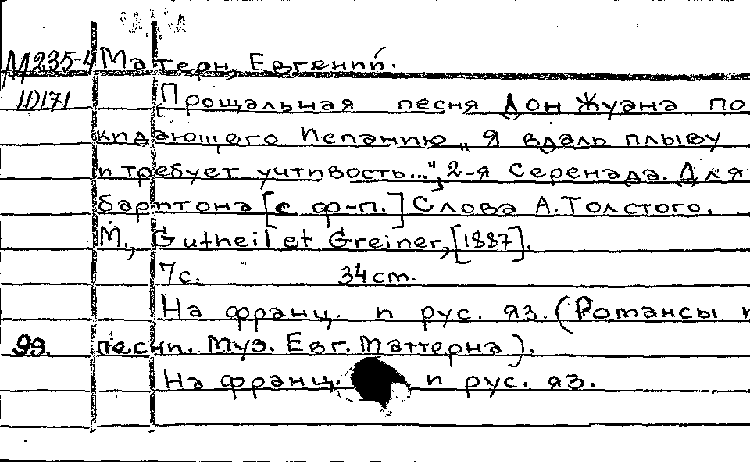 М235-4 Матерн, Евгений.
1D171 [Прощальная песня Дон Жуана по
кидающего Испанию „Я вдаль плыву
и требует учтивость...", 2-я серенада. Для
баритона [с ф-п.] Слова А. Толстого.
М., Gutheil et Greiner, [1887].
7с. 34 cm.
На франц. и рус. яз. (Романсы и
99. песни. Муз. Евг. Маттерна).
На франц. и рус. яз.